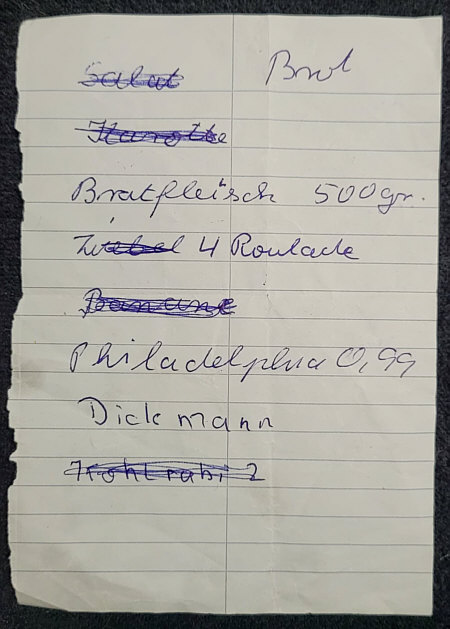 Salat Brot
Karotte
Bratfleisch 500gr.
Zwiebel 4 Roulade
Banane
Philadelphia 0,99
Dickmann
Kohlrabi 2